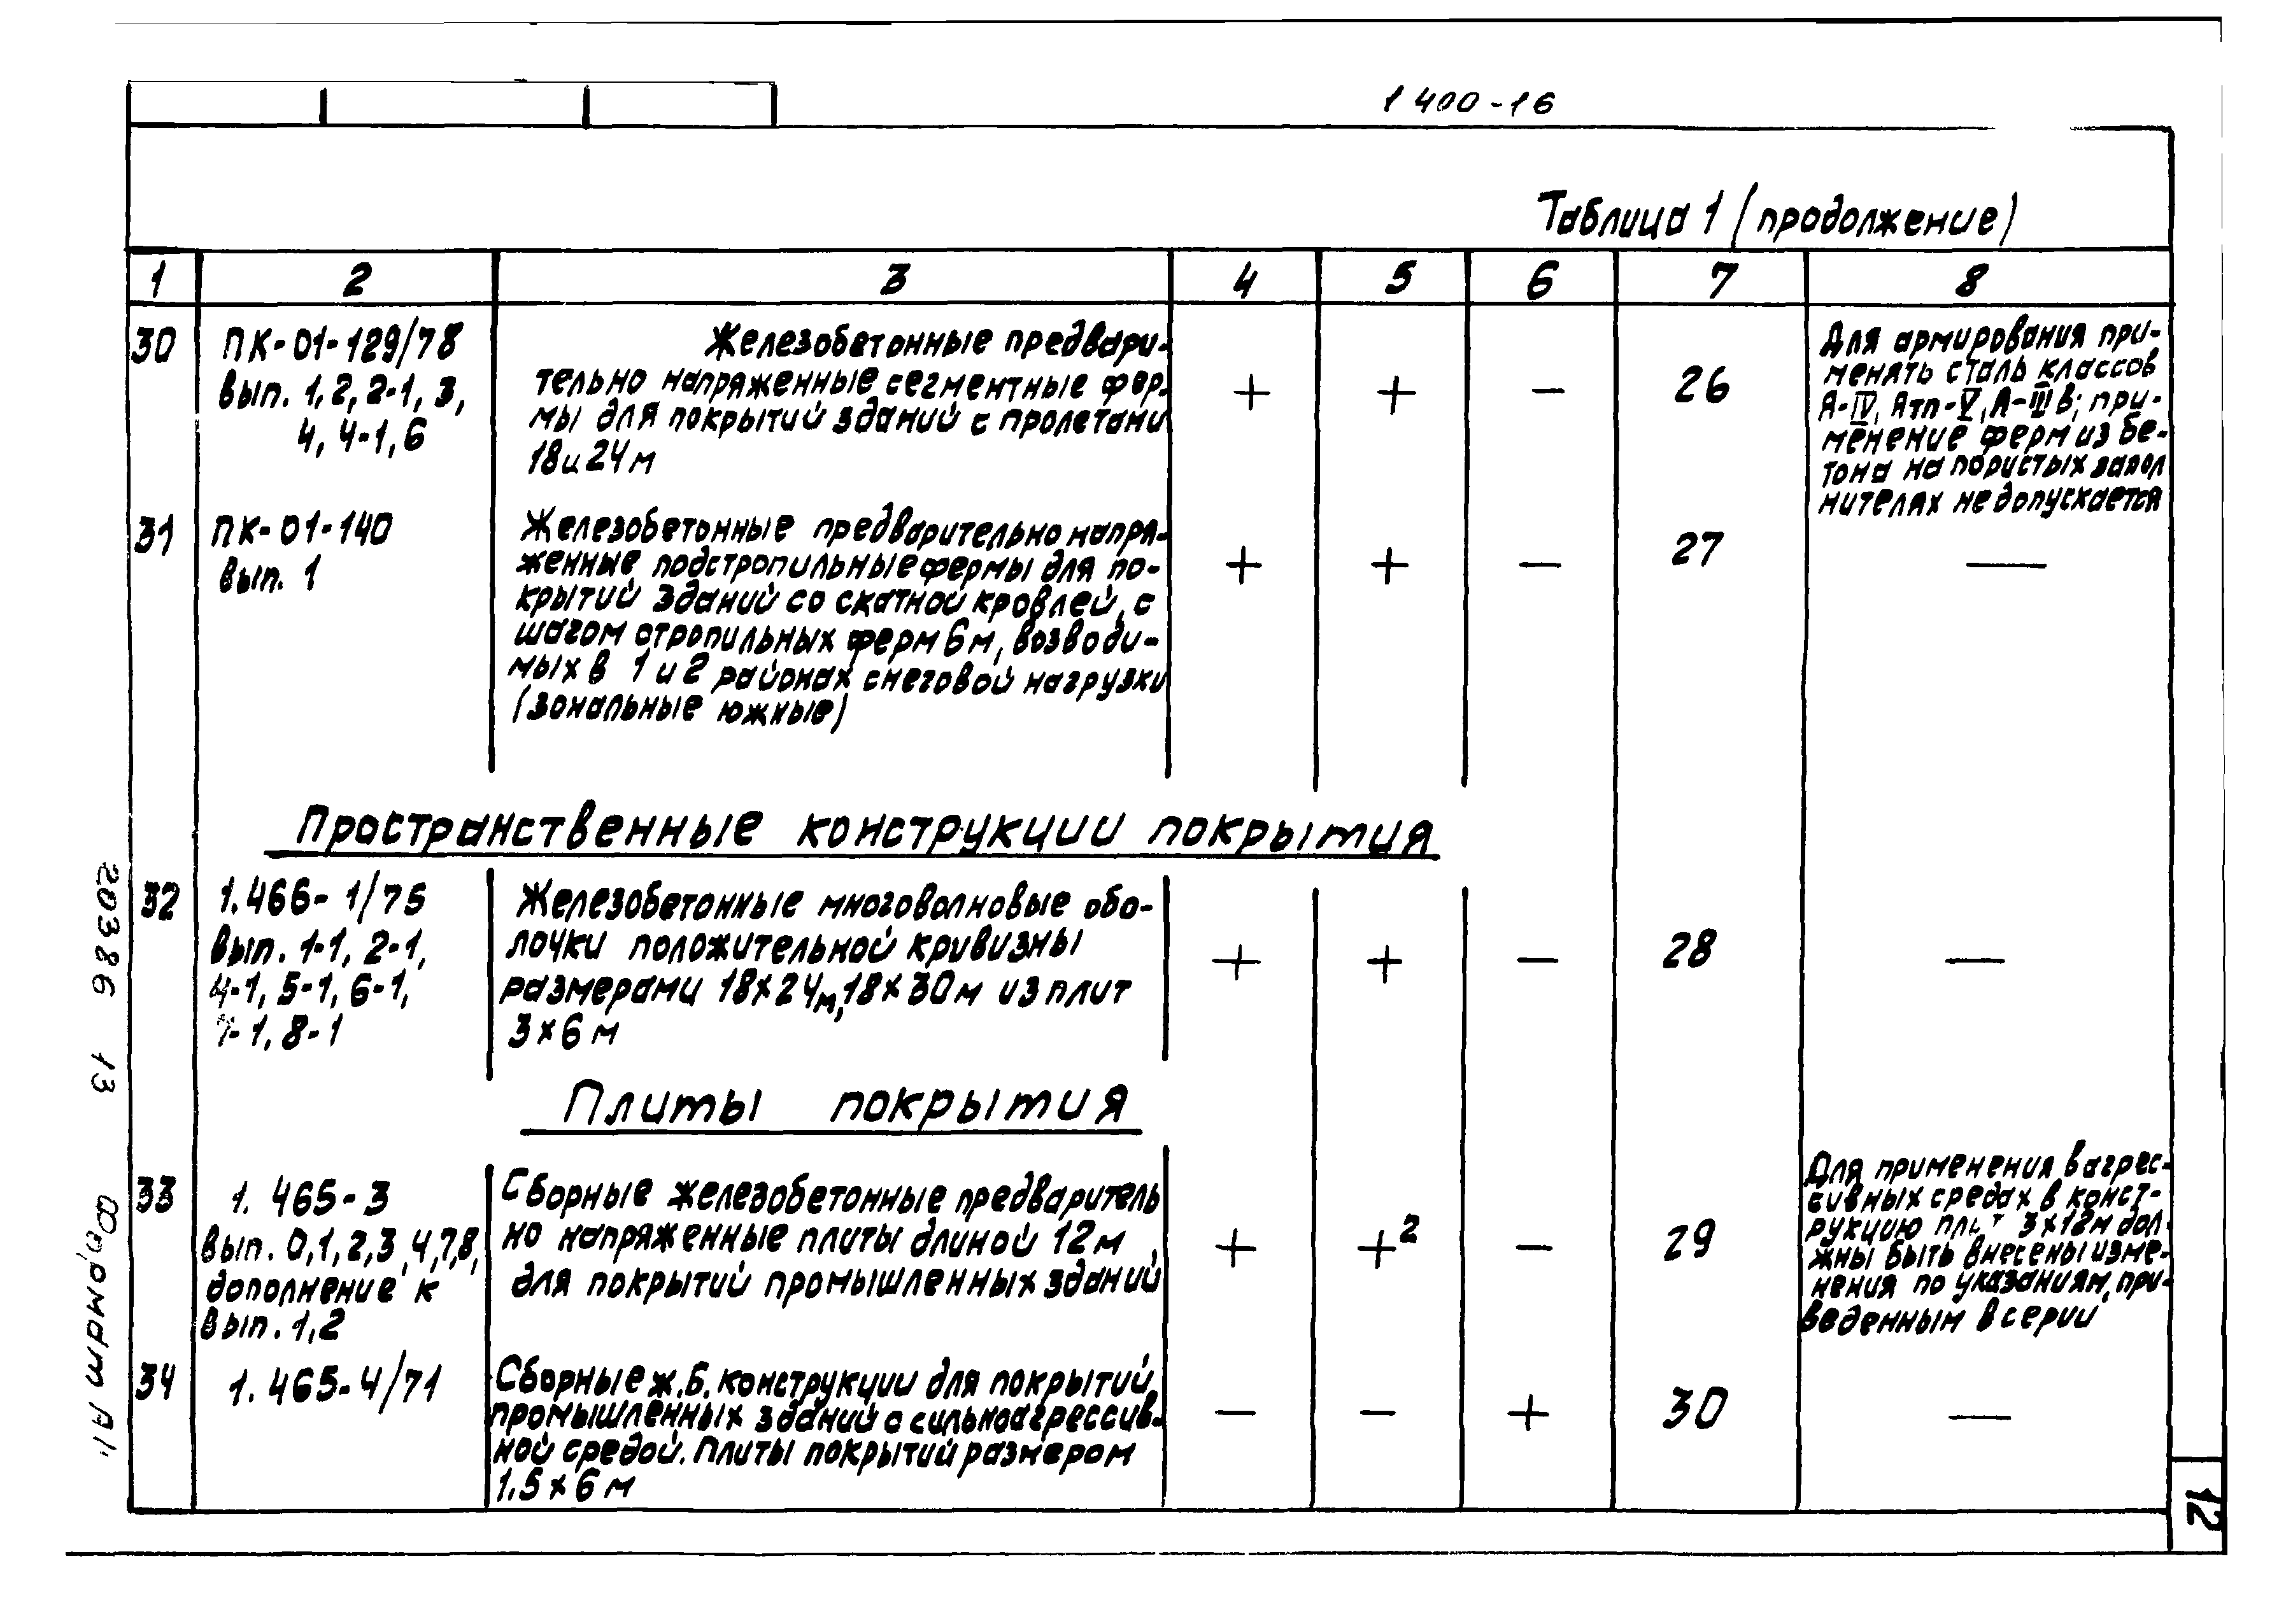 1 400-16
Таблица 1 (продолжение)
1 2 3 4 5 6 7 8
30
ПК-01-129/78
вып. 1, 2, 2-1, 3,
4, 4-1, 6
Железобетонные предвари-
тельно напряженные сегментные фер-
мы для покрытий зданий с пролетами
18 и 24 м
+ + - 26
Для армирования при-
менять сталь классов
А-IV, Атп-V, А-III в; при-
менение ферм из бе-
тона на пористых запол
нителях не допускается
31
ПК-01-140
вып. 1
Железобетонные предварительно напря-
женные подстропильные фермы для по-
крытий зданий со скатной кровлей, с
шагом стропильных ферм 6 м, возводи-
мых в 1 и 2 районах снеговой нагрузки
(зональные южные)
+ + - 27 —
Пространственные конструкции покрытия
32
1.466-1/75
вып. 1-1, 2-1,
4-1, 5-1, 6-1,
7-1, 8-1
Железобетонные многоволновые обо-
лочки положительной кривизны
размерами 18х24м, 18х30м из плит
3х6 м
+ + - 28 —
Плиты покрытия
33
1. 465-3
вып. 0, 1, 2, 3, 4, 7, 8,
дополнение к
вып. 1, 2
Сборные железобетонные предваритель
но напряженные плиты длиной 12 м
для покрытий промышленных зданий
+ +2 - 29
Для применения в агрес-
сивных средах в конст-
рукцию плит 3х12м дол
жны быть внесены изме-
нения по указаниям, при-
веденным в серии
34
1. 465-4/71
Сборные ж.б. конструкции для покрытий
промышленных зданий с сильноагрессив-
ной средой. Плиты покрытий размером
1.5 х 6 м
- - + 30 —
20386 13 Формат А4
12